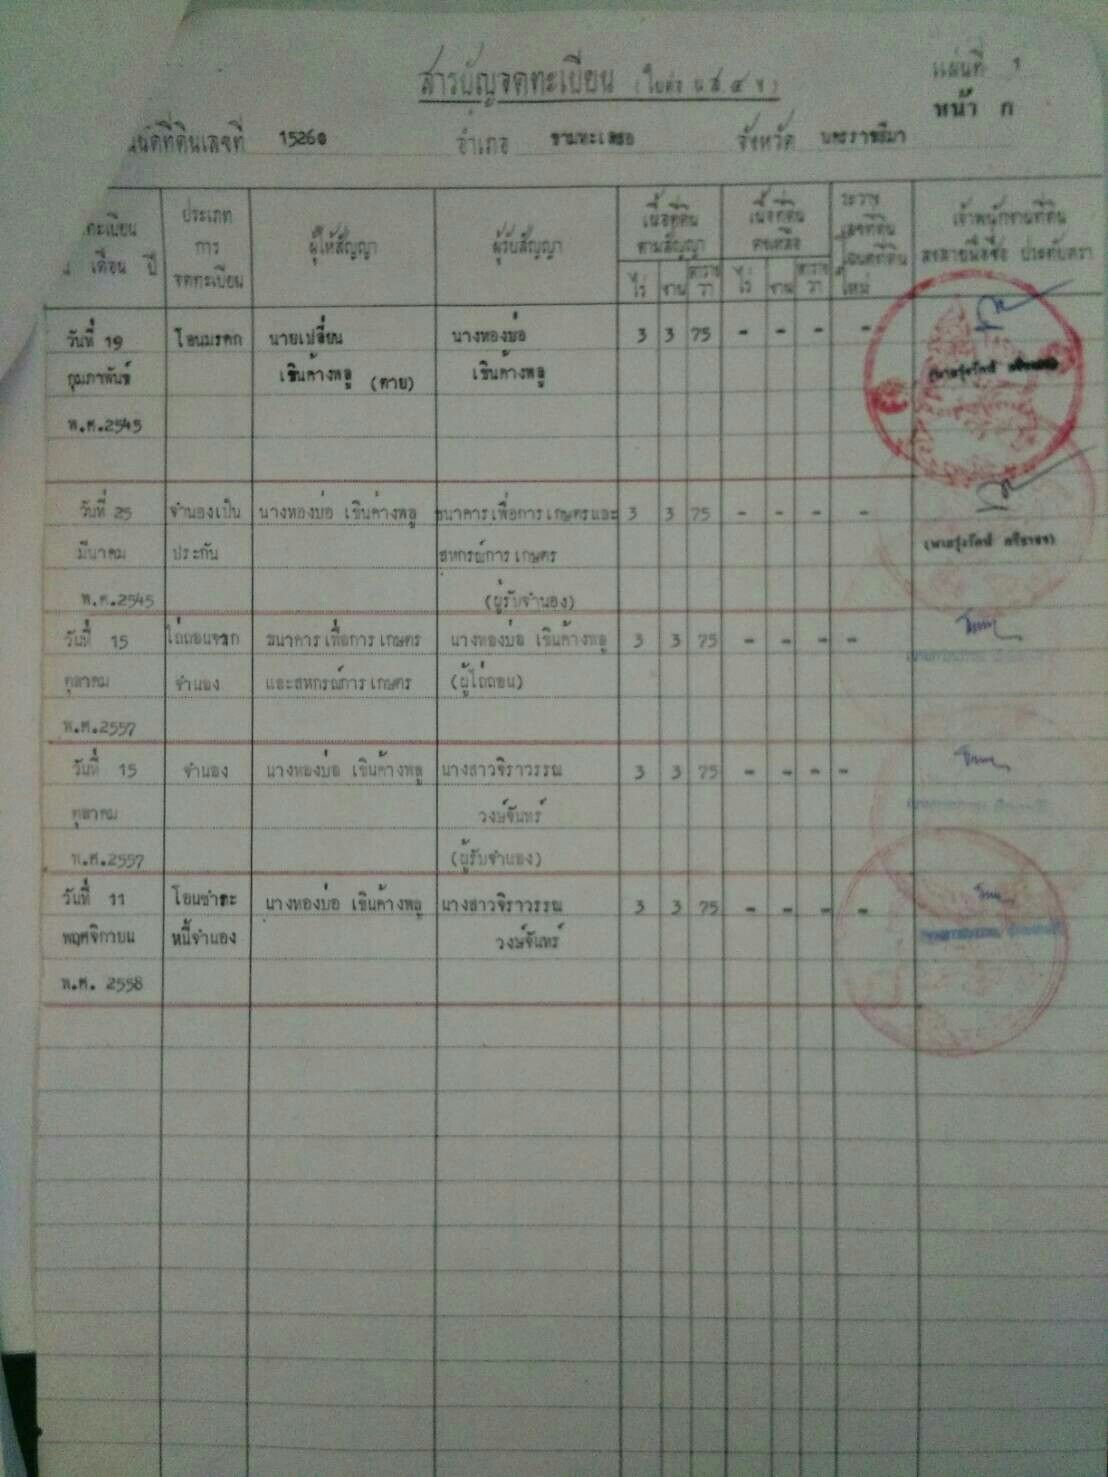 สารบัญจดทะเบียน (ใบต่อ น.ส. ๔ จ)
แผ่นที่ 1
หน้า ก
โฉนดที่ดินเลขที่ 15260 อำเภอ ขามทะเลสอ จังหวัด นครราชสีมา
ทะเบียน
เดือน ปี
ประเภท
การ
จดทะเบียน
ผู้ให้สัญญา
ผู้รับสัญญา
เนื้อที่ดิน
ตามสัญญา
ไร่ งาน ตาราง
วา
เนื้อที่ดิน
คงเหลือ
ไร่ งาน ตาราง
วา
ระวาง
เลขที่ดิน
โฉนดที่ดิน
ใหม่
เจ้าพนักงานที่ดิน
ลงลายมือชื่อ ประทับตรา
วันที่ 19 โอนมรดก นายเปลี่ยน นางทองบ่อ 3 3 75 - - - -
กุมภาพันธ์ เขินค้างพลู (ตาย) เขินค้างพลู
พ.ศ.2545
วันที่ 25 จำนองเป็น นางทองบ่อ เขินค้างพลู ธนาคารเพื่อการเกษตรและ 3 3 75 - - - -
มีนาคม ประกัน สหกรณ์การเกษตร
พ.ศ.2545 (ผู้รับจำนอง)
วันที่ 15 ไถ่ถอนจาก ธนาคารเพื่อการเกษตร นางทองบ่อ เขินค้างพลู 3 3 75 - - - -
ตุลาคม จำนอง และสหกรณ์การเกษตร (ผู้ไถ่ถอน)
พ.ศ.2557
วันที่ 15 จำนอง นางทองบ่อ เขินค้างพลู นางสาวจิราวรรณ 3 3 75 - - - -
ตุลาคม วงษ์จันทร์
พ.ศ.2557 (ผู้รับจำนอง)
วันที่ 11 โอนชำระ นางทองบ่อ เขินค้างพลู นางสาวจิราวรรณ 3 3 75 - - - -
พฤศจิกายน หนี้จำนอง วงษ์จันทร์
พ.ศ. 2558